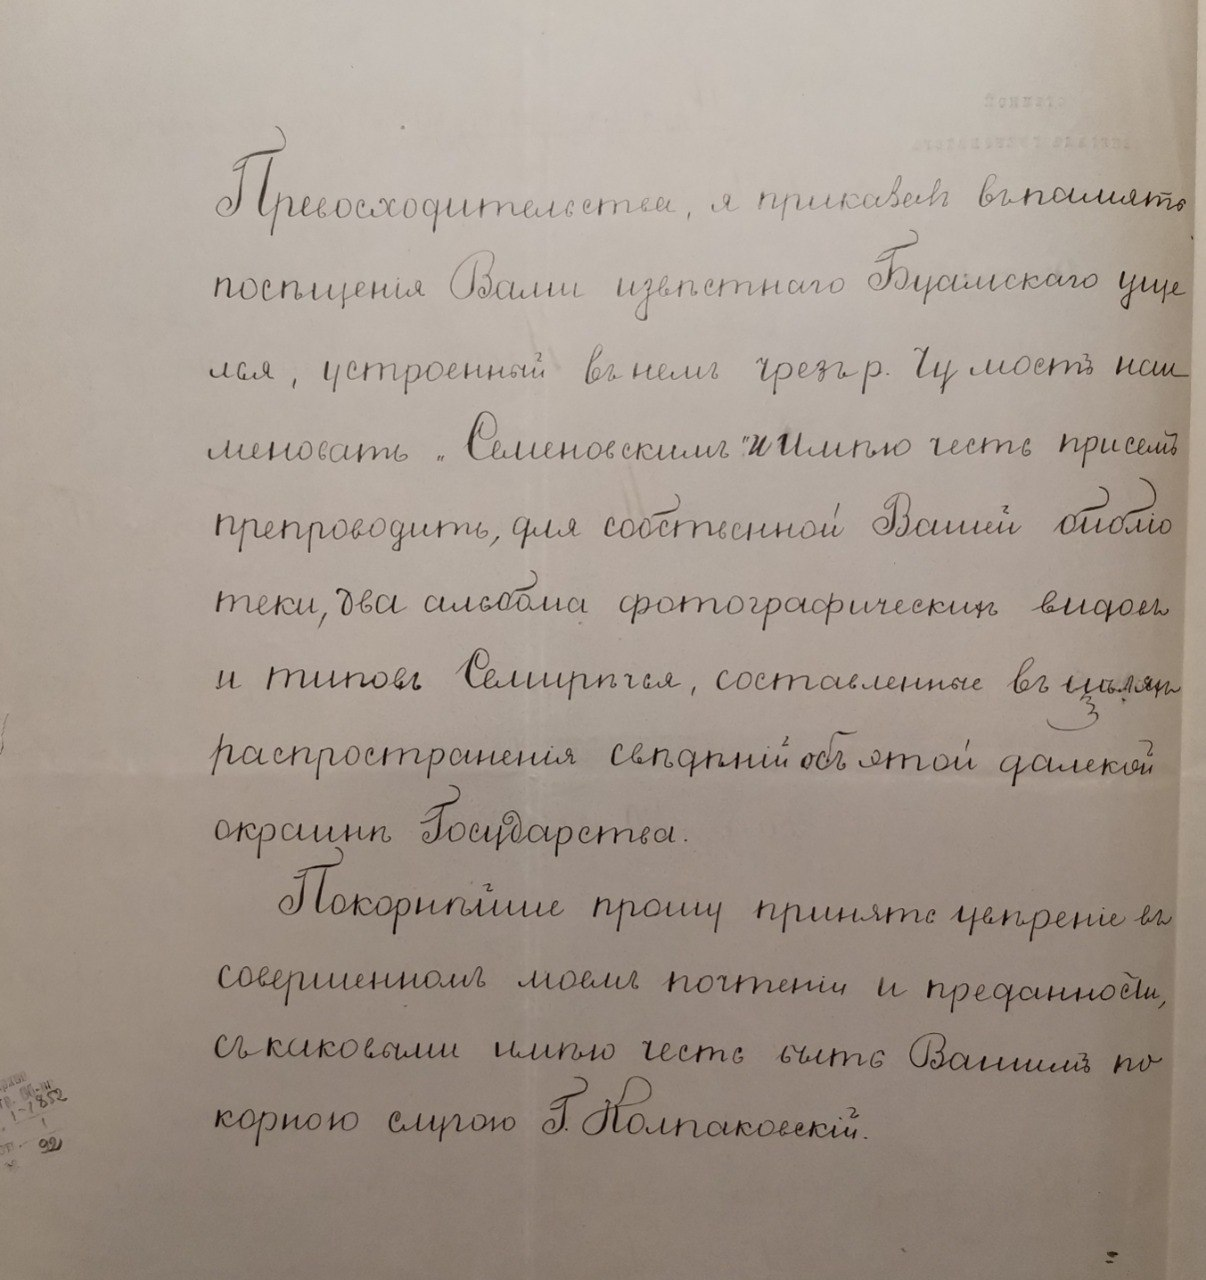 Превосходительства, я приказалъ въ память
посѣщенія Вами извѣстнаго Буамскаго уще
лья, устроенный въ немъ чрезъ р. Чу мостъ наи
меновать „Семеновскимъ" и имѣю честь при семъ
препроводить, для собственной Вашей библіо
теки, два альбома фотографическихъ видовъ
и типовъ Семирѣчья, составленные въ цѣляхъ
распространенія свѣдѣній объ этой далекой
окраинѣ Государства.
Покорнѣйше прошу принять увѣреніе въ
совершенномъ моемъ почтеніи и преданности,
съ каковыми имѣю честь быть Вашимъ по
корною слугою Г. Колпаковскій.
1-1852
1
92